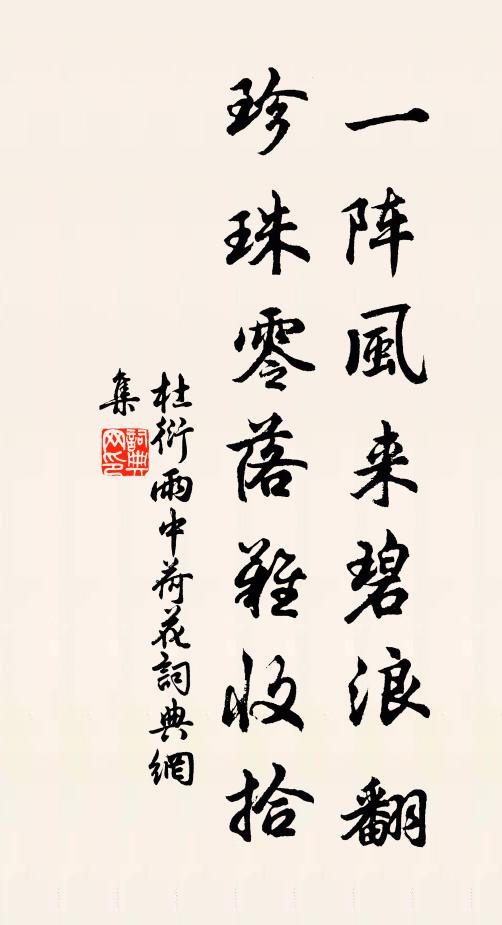 一阵風来碧浪翻
珍珠零落難收拾
杜衍雨中荷花詞典網
集
詞典网印